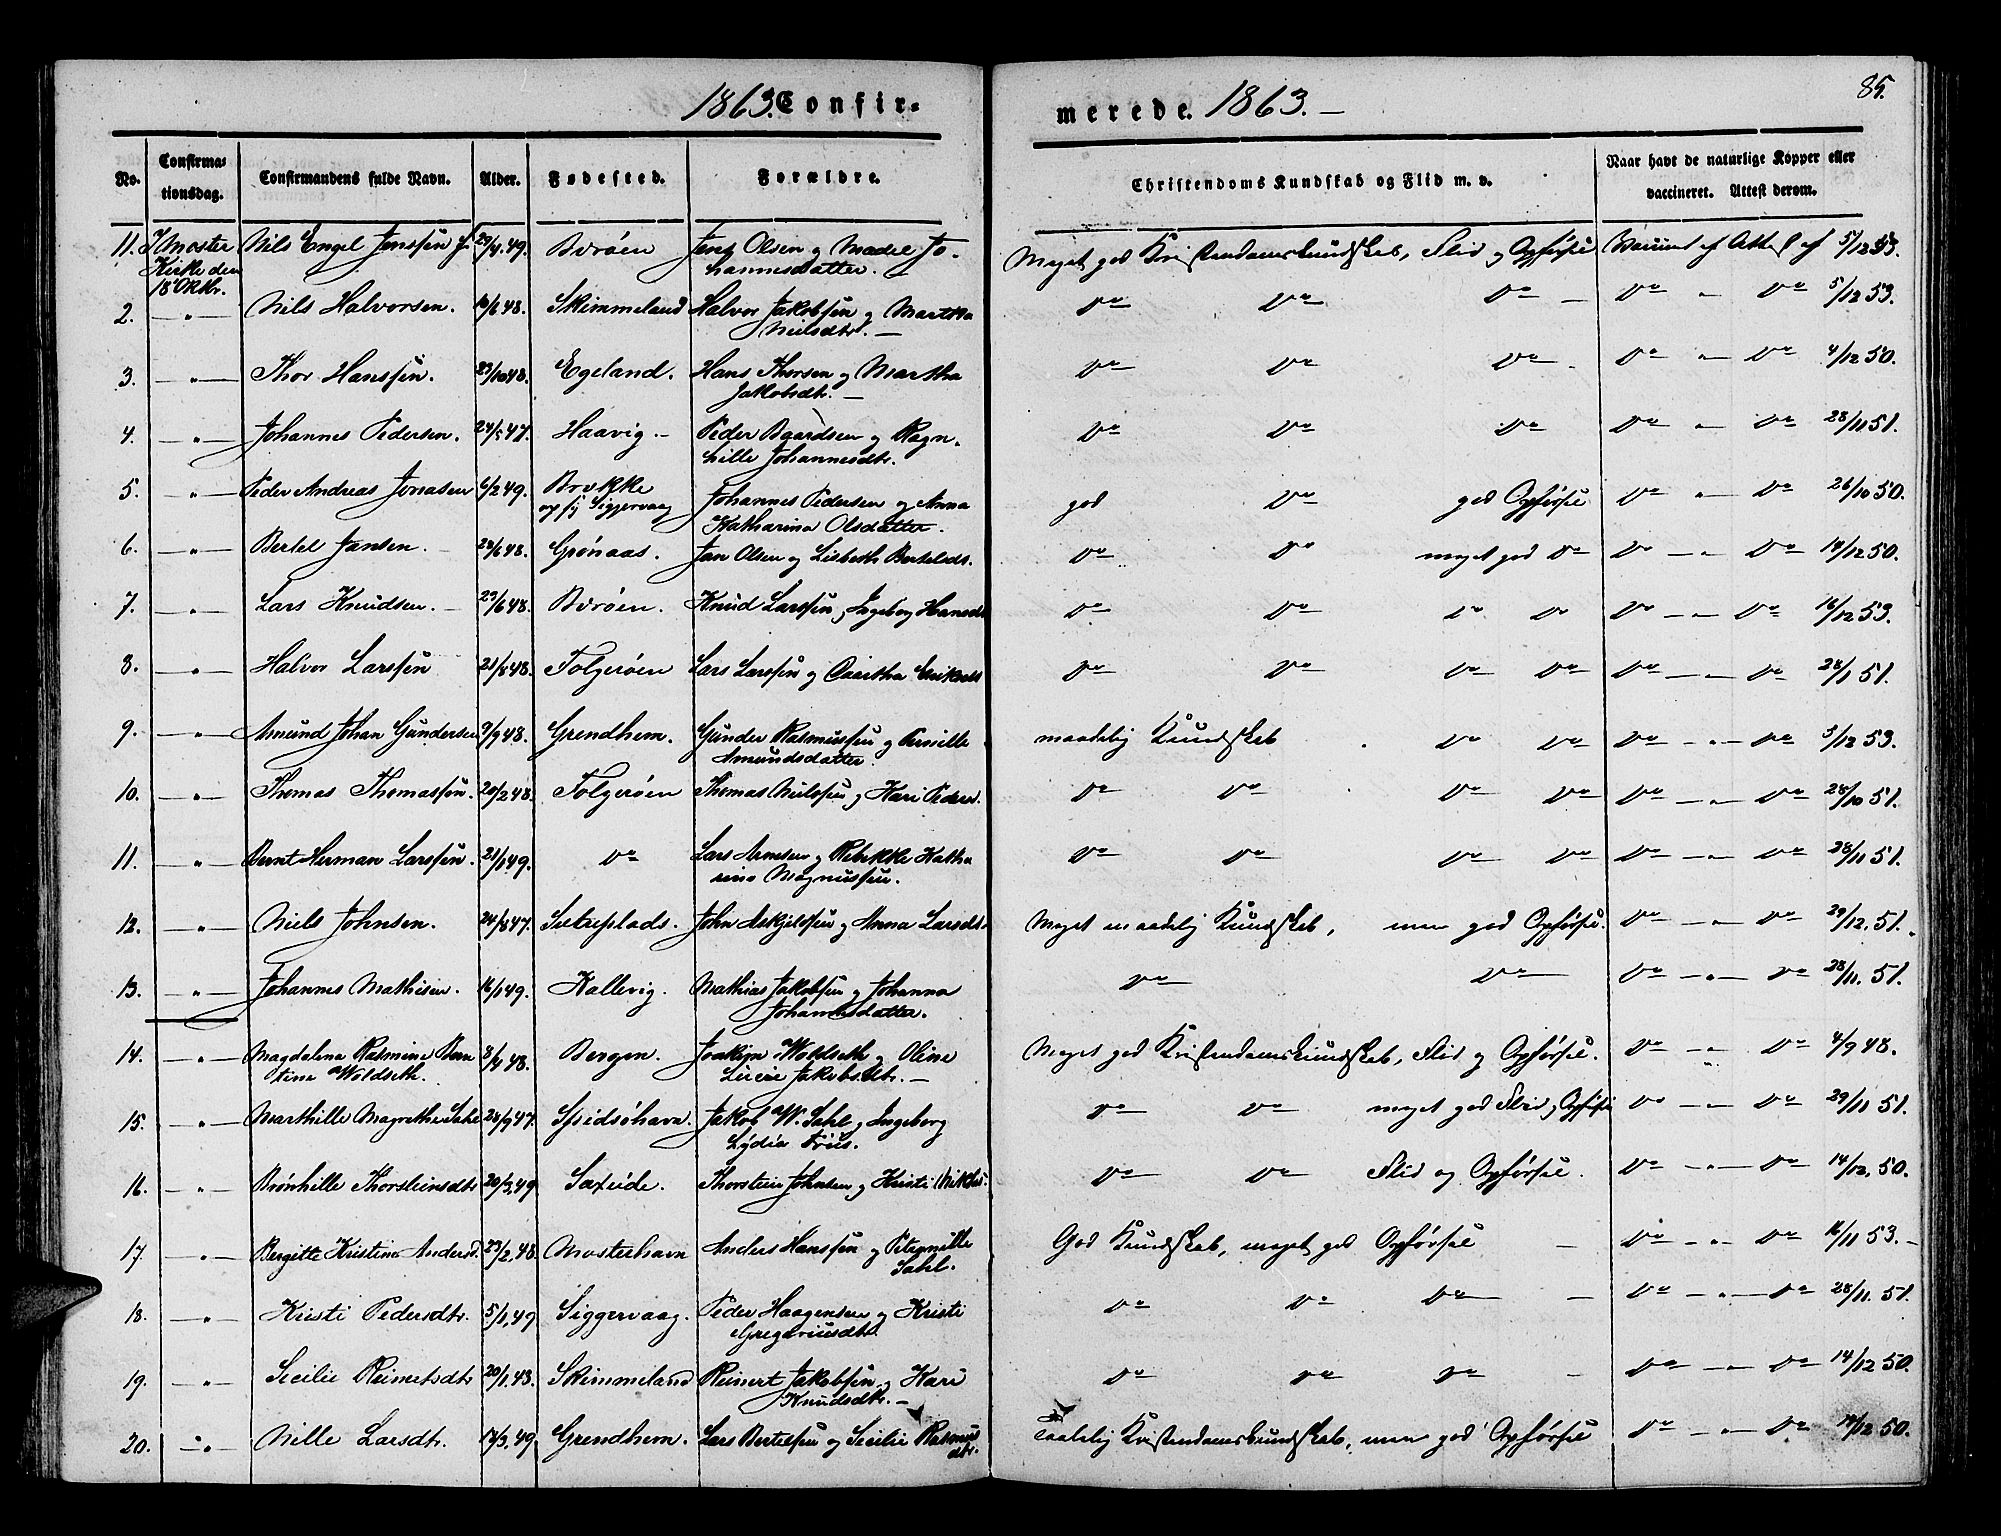 1863. Confir-
merede. 1863. —
85.
No.
Confirma-
tionsdag.
Confirmandens fulde Navn.
Alder.
Fødested.
Forældre.
Christendoms Kundskab og Flid m. v.
Naar havt de naturlige Kopper eller
vaccineret. Attest derom.
11. I Moster Nils Engel Jenssen 29/4.49. Børøen Jens Olsen og Madel Jo-
Kirke den hannesdatter. Meget god Kristendomskundskab, Flid og Opførsel Vaccineret af Attest af 5/12 53.
18 Oktbr.
2. — " — Nils Halvorsen. 10/6 48. Skimmeland Halvor Jakobsen og Martha
Nilsdtr. — Do Do Do — Do " Do 5/12 53.
3. — " — Thor Hanssen. 23/10 48. Egeland. Hans Thorsen og Martha
Jakobsdtr. — Do Do Do Do " Do 4/12 50.
4. — " — Johannes Pedersen. 24/5 47. Haavig. — Peder Baardsen og Ragn-
hille Johannesdtr. Do Do Do Do " Do 28/11 51.
5. — " — Peder Andreas Jonasen 6/2 49. Brække
op. hj. Siggjervaag Johannes Pedersen og Anna
Katharina Olsdatter. god Do god Opførsel Do " Do 26/10 50.
6. — " — Bertel Jansen. 23/6 48. Grønaas. Jan Olsen og Lisbeth Bertelsdt. Do Do meget god Do Do — " — Do 14/12 50.
7. — " — Lars Knudsen. — 29/6 48. Børøen. Knud Larssen, Ingeborg Hansdt Do Do Do Do Do — " — Do 16/12 53.
8. — " — Halvor Larssen 21/8 48. Folgerøen Lars Larssen og Martha Eriksdt Do Do Do Do Do — " — Do 28/1 51.
9. — " — Amund Johan Gundersen 9/9 48. Grendhem. Gunder Rasmussen og Pernille
Amundsdatter. maadelig Kundskab Do Do Do — " — Do 5/12 53.
10. — " — Thomas Thomassen. 20/2 48. Folgerøen Thomas Nilssen og Kari Peders. Do Do Do Do Do — " — Do 28/10 51.
11. — " — Bernt Herman Larssen. 21/1 49. Do Lars Arnesen og Rebekke Katha
rina Magnussen. Do Do Do Do Do — " — Do 28/11 51.
12. — " — Niels Johnsen. 24/8 47. Sætreplads. John Askjelssen og Anna Larsdt. Meget maadelig Kundskab, men god Opførsel. Do — " — Do 29/12. 51.
13. — " — Johannes Mathisen. 16/1 49. Kallevig. Mathias Jakobsen og Johanna
Johannesdatter. Do Do Do — " — Do 28/11. 51.
14. — " — Magdalena Rasmine Bern
tine Woldseth. 8/4 48. Bergen. Joakim Woldseth og Oline
Lucie Jakobsdtr. — Meget god Kristendomskundskab, Flid og Opførsel. Do — " — Do 4/9 48.
15. " Marthille Magrethe Sahl 24/9 47. Spidsøhavn. Jakob W. Sahl og Ingeborg
Lydia Friis. Do Do meget god Flid og Opførsel Do — " — Do 29/11 51.
16. — " — Brønhille Thorsteinsdtr 20/3. 49. Sæteide. Thorstein Johnsen og Kristi Do Do Flid og Opførsel. Do — " — Do 14/12. 50.
17. " — Bergitte Kristine Andersd. 23/2. 48. Mosterhavn Anders Hanssen og Peternille
Sahl. God Kundskab, meget god Opførsel — Do — " — Do 16/11 53. —
18. — " — Kristi Pedersdtr. 5/1. 49. Siggervaag. Peder Haagensen og Kristi
Gregoriusdtr. Do Do Do — Do — " — Do 28/11. 51.
19. — " — Sicilie Reinertsdtr 20/1. 48. Skimmeland Reinert Jakobsen og Kari
Knudsdtr. — Do Do Do — Do — " — Do 14/12 50.
20. — " — Nille Larsdtr. 17/3. 49. Grendhem. Lars Bertelsen og Sicilie Rasmus
dtr. Taalelig Kristendomskundskab, men god Opførsel Do — " — Do 14/12 50.